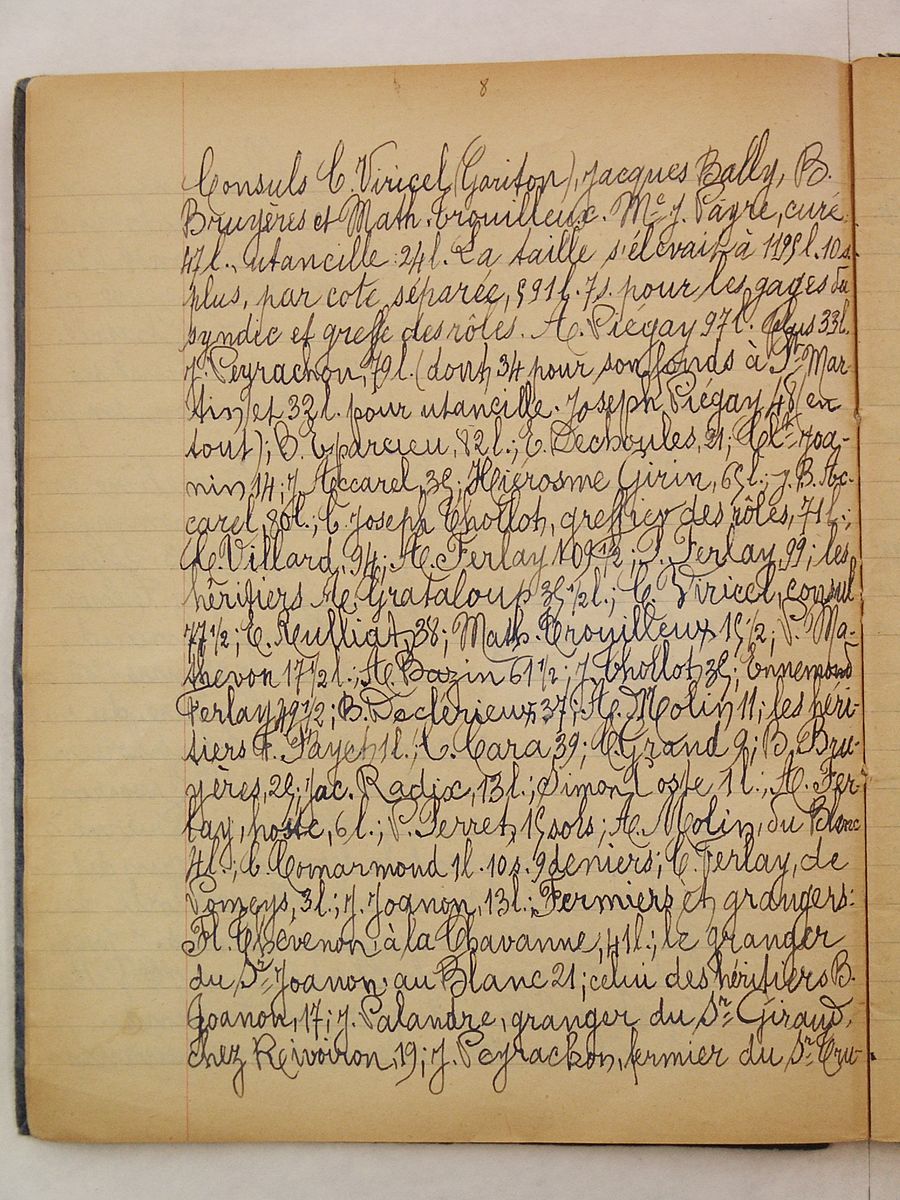 8
Consuls C. Viricel (Gariton), Jacques Bally, B.
Bruyères et Math. Trouilleux. Mc J. Payre, curé
47 l., utancille 24 l. La taille s'élevait à 1195 l. 10 s.
plus, par cote séparée, 591 l. 7 s. pour les gages du
syndic et greffe des rôles. A. Piégay 97 l. Plus 33 l.
J. Peyrachon, 79 l. (dont 34 pour son fonds à St Mar-
tin et 32 l. pour utancille. Joseph Piégay 48 en
tout); B. Eparcieu, 82 l.; E. Dechoules, 21; Cl. Joa-
nin 14; J. Accarel, 35; Hiérosme Girin, 65 l.; J. B. Ac-
carel, 80 l.; C. Joseph Chollot, greffier des rôles, 71 l.;
A. Villard, 94; A. Ferlay 109 1/2; P. Ferlay, 99; les
héritiers A. Grataloup 35 1/2 l.; C. Viricel, consul
77 1/2; C. Reulliat, 38; Math. Trouilleux 15 1/2; P. Ma-
thevon 17 1/2 l.; A. Bazin 61 1/2; J. Chollot, 35; Ennemond
Ferlay 49 1/2; B. Declérieux 37; A. Molin 11; les héri-
tiers F. Payet 1 l.; C. Cara 39; C. Grand 9; B. Bru-
yères, 25; Jac. Radix, 13 l.; Simon Coste 1 l.; A. Fer-
lay, hoste, 6 l.; P. Ferret, 15 sols; A. Molin, du Blanc
4 l.; C. Comarmond 1 l. 10 s. 9 deniers; C. Ferlay, de
Pomeys, 3 l.; J. Joanon, 13 l.; Fermiers et grangers:
Fl. Thevenon, à la Chavanne, 41 l.; le granger
du Sr Joanon au Blanc 21; celui des héritiers B.
Joanon, 17; J. Palandre, granger du Sr Giraud,
chez Reivoiron, 19; J. Peyrachon, fermier du Sr Cru-